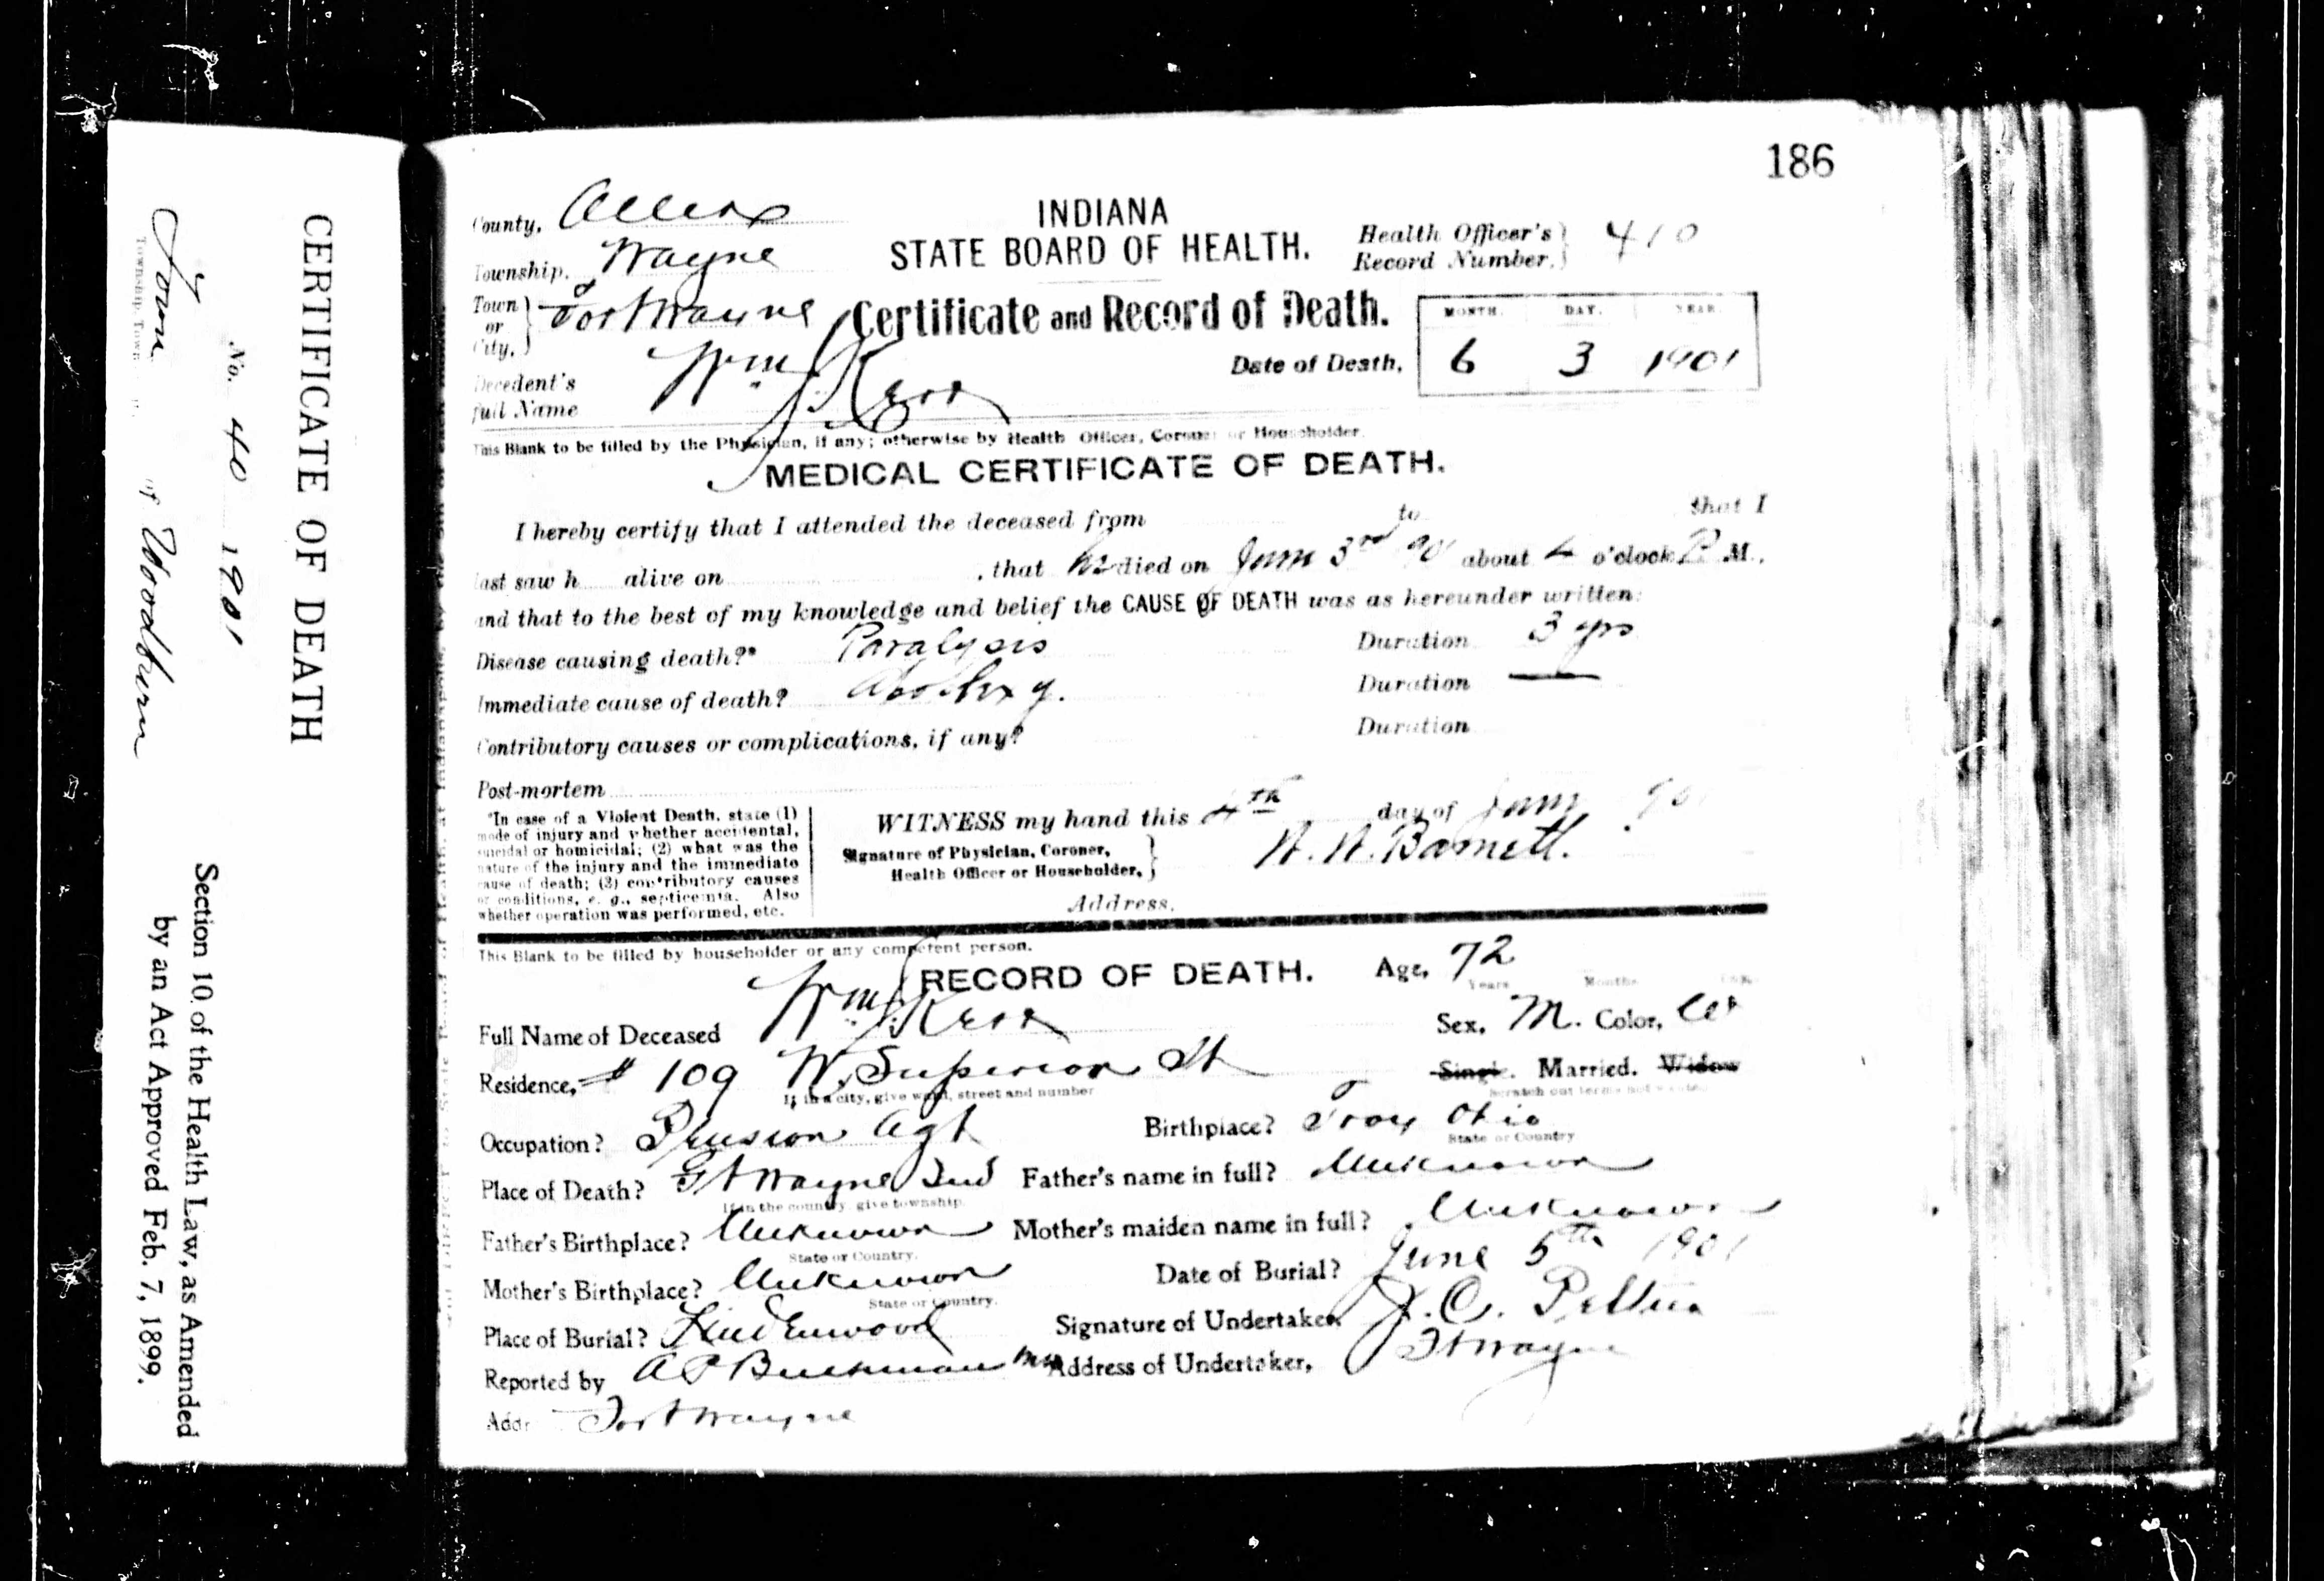 186
County, Allen
Township, Wayne
Town or City, Fort Wayne
INDIANA
STATE BOARD OF HEALTH.
Health Officer's Record Number, 410
Certificate and Record of Death.
MONTH. DAY. YEAR.
Date of Death, 6 3 1901
Decedent's full Name Wm. J. Kerr
This Blank to be filled by the Physician, if any; otherwise by Health Officer, Coroner or Householder.
MEDICAL CERTIFICATE OF DEATH.
I hereby certify that I attended the deceased from to that I
last saw h alive on , that he died on June 3rd 901 about 4 o'clock P. M.,
and that to the best of my knowledge and belief the CAUSE OF DEATH was as hereunder written:
Disease causing death?* Paralysis Duration 3 yrs
Immediate cause of death? Apoplexy. Duration —
Contributory causes or complications, if any? Duration
Post-mortem
*In case of a Violent Death, state (1)
mode of injury and whether accidental,
suicidal or homicidal; (2) what was the
nature of the injury and the immediate
cause of death; (3) contributory causes
or conditions, e. g., septicemia. Also
whether operation was performed, etc.
WITNESS my hand this 4th day of June 901
Signature of Physician, Coroner,
Health Officer or Householder, W. W. Barnett.
Address,
This Blank to be filled by householder or any competent person.
RECORD OF DEATH. Age, 72
Years Months
Full Name of Deceased Wm. J. Kerr Sex, M. Color,
Residence, # 109 W. Superior St Single. Married. Widow
If in a city, give ward, street and number Scratch out terms not wanted.
Occupation? Pension Agt Birthplace? Troy Ohio
State or Country
Place of Death? Ft Wayne Ind Father's name in full? Unknown
If in the country give township.
Father's Birthplace? Unknown Mother's maiden name in full? Unknown
State or Country.
Mother's Birthplace? Unknown Date of Burial? June 5th 1901
State or Country.
Place of Burial? Lindenwood Signature of Undertaker, J. C. Peltier
Reported by A P Buchman Address of Undertaker, Ft Wayne
Addr Fort Wayne
CERTIFICATE OF DEATH
No. 40 1901
Town of Woodburn
Township, Town
Section 10 of the Health Law, as Amended
by an Act Approved Feb. 7, 1899.